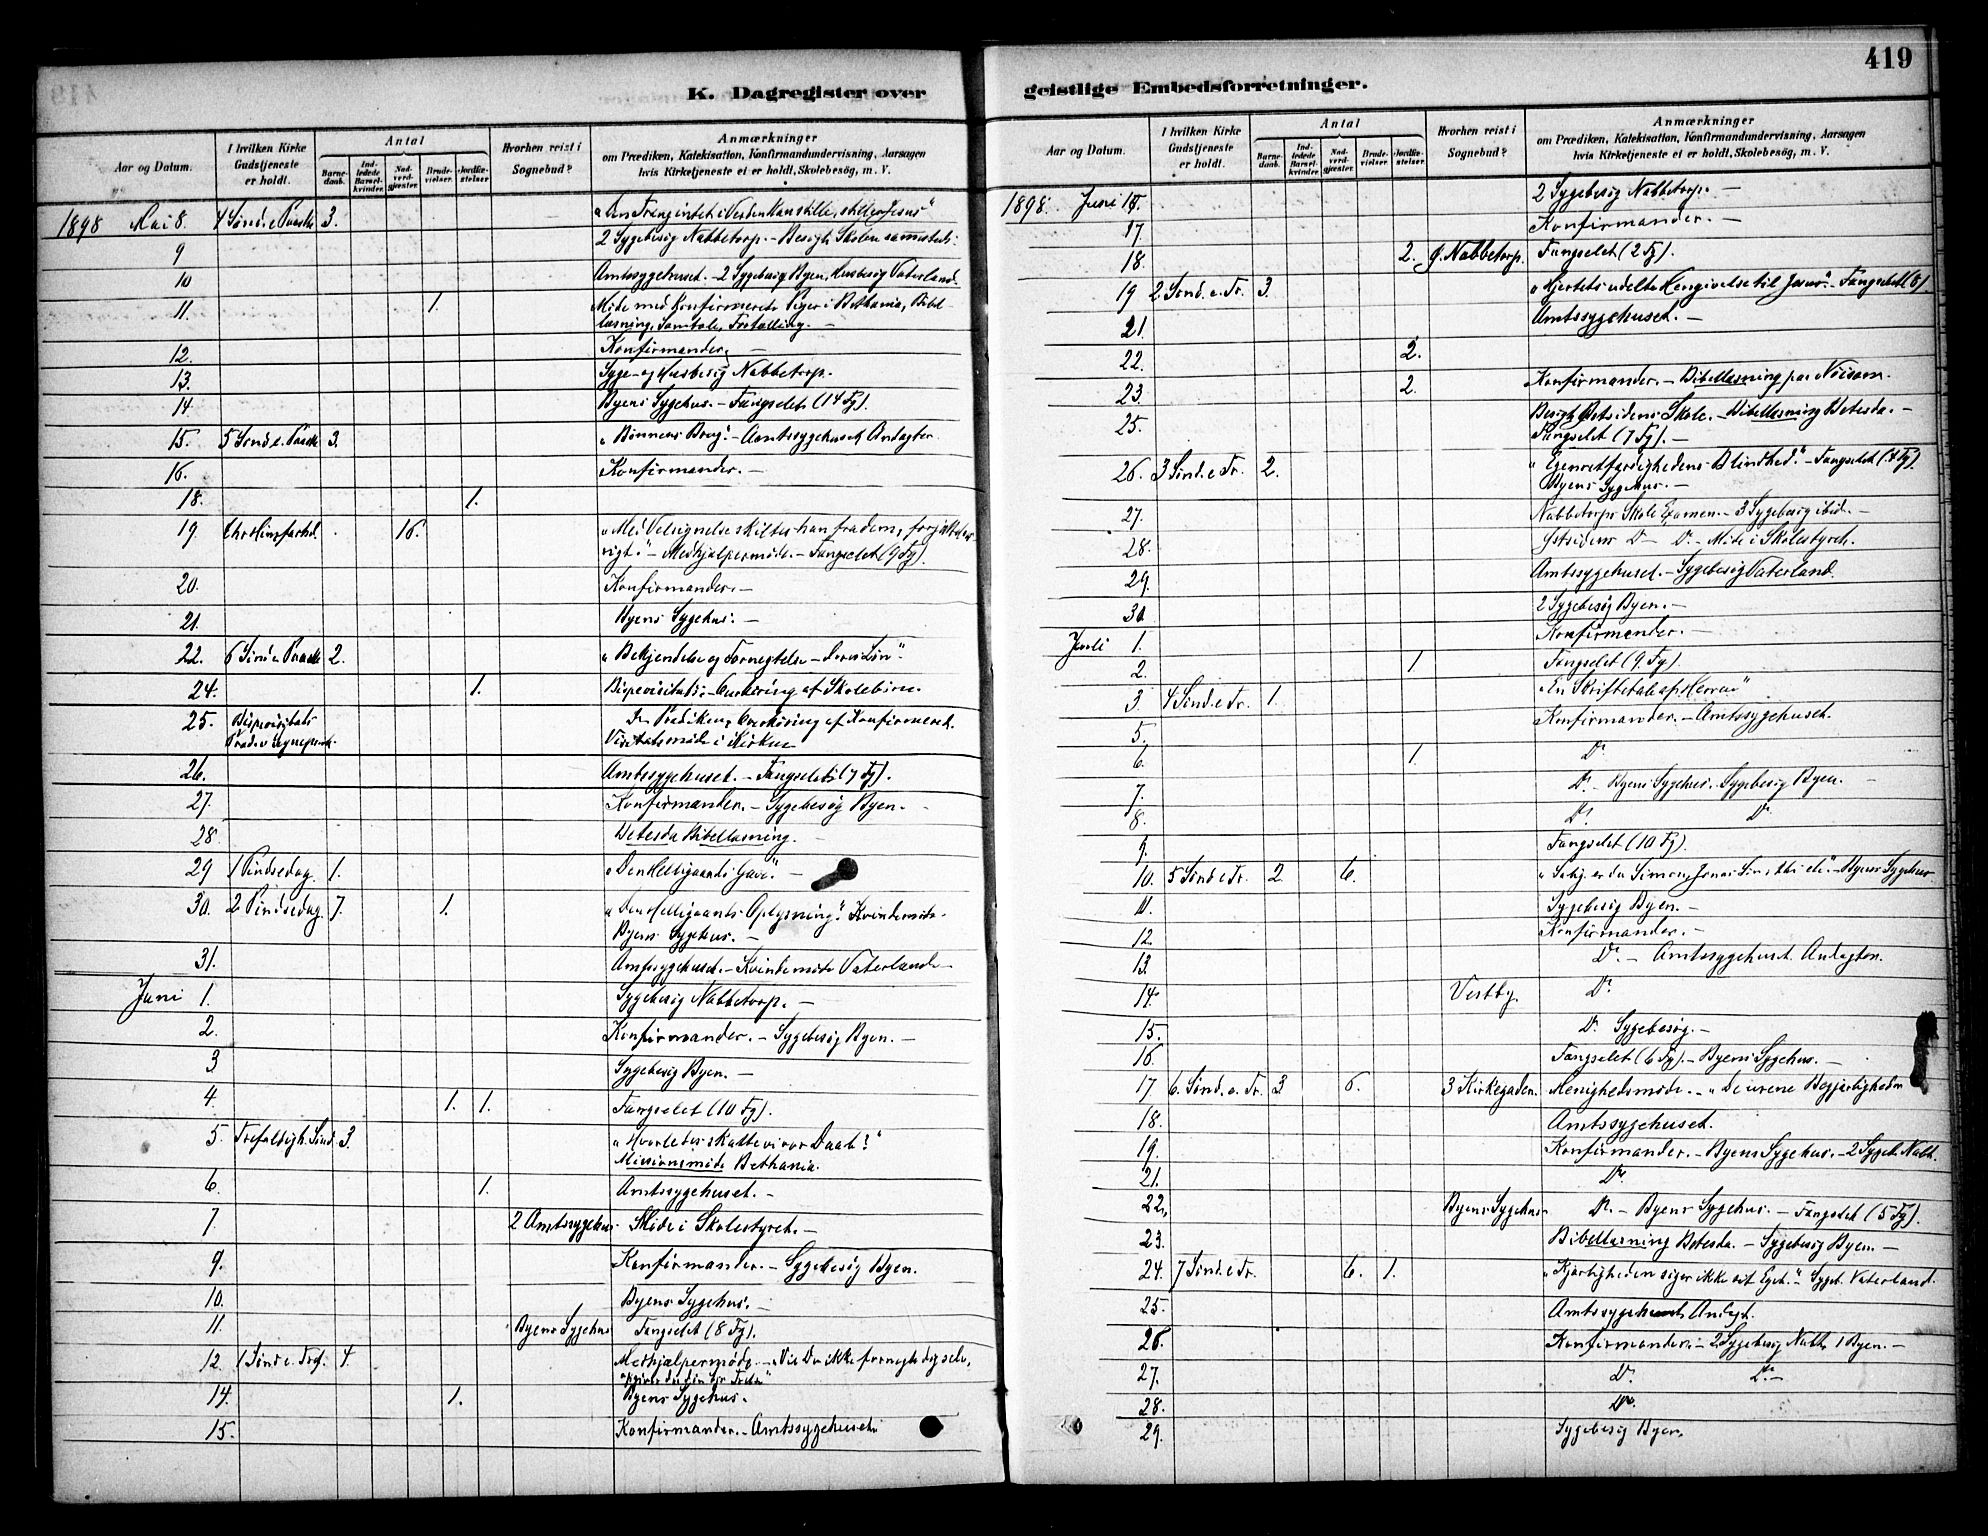 419
K. Dagregister over
geistlige Embedsforretninger.
Aar og Datum.
I hvilken Kirke Gudstjeneste er holdt.
Antal
Barnedaab.
Indledede Barselkvinder.
Nadverdgjæster.
Brudevielser.
Jordfæstelser.
Hvorhen reist i Sognebud?
Anmærkninger
om Prædiken, Katekisation, Konfirmandundervisning, Aarsagen
hvis Kirketjeneste ei er holdt, Skolebesög, m. V.
1898 Mai 8. 4 Sønd. e. Paaske 3.
9 2 Sygebesøg Nabbetorp. – Besøgt Skolen sammesteds.
10 Amtssygehuset. – 2 Sygebesøg Byen, Husbesøg Vaterland.
11. 1. Møde med Konfirmerede Piger i Bethania, Bibel-
læsning, Samtale, Fortælling. –
12. Konfirmander. –
13. Syge- og Husbesøg Nabbetorp.
14. Byens Sygehus. – Fængselet (14 Fg).
15. 5 Sønd e. Paaske 3. „Bønnens Brug." – Amtssygehuset Andagter.
16. Konfirmander. –
18. 1.
19. Chr. Himmelfartsd. 16. „Med Velsignelse skiltes han fra dem,
– Medhjælpermøde. – Fængselet (9 Fg).
20. Konfirmander. –
21. Byens Sygehus. –
22. 6 Sønd e Paaske 2. „Bekjendelse og Fornegtelse
24. 1. Bispevisitats. – Overhøring af Skolebørn.
25. Bispevisitats Prædiken, Overhøring af Konfirmerede.
Visitatsmøde i Kirken
26. Amtssygehuset. – Fængselet (7 Fg).
27. Konfirmander. – Sygebesøg Byen. –
28. Betesda Bibellæsning. –
29 1 Pindsedag. 1. „Den Helligaands Gave". –
30. 2 Pindsedag. 7. 1. „Den Helligaands Oplysning". Kvindemøde
Byens Sygehus. –
31. Amtssygehuset. – Kvindemøde Vaterland –
Juni 1. Sygebesøg Nabbetorp. –
2. Konfirmander. – Sygebesøg Byen. –
3 Sygebesøg Byen. –
4. 1. 1. Fængselet (10 Fg).
5. Trefoldigh. Sønd. 3. „Hvorledes skatte vi vor Daab?"
Missionsmøde Bethania.
6. 1. Amtssygehuset. –
7 2 Amtssygehus. Møde i Skolestyret. –
9. Konfirmander. – Sygebesøg Byen.
10. Byens Sygehus. –
11. Byens Sygehus Fængselet (8 Fg).
12. 1 Sønd e. Tref. 4. Medhjælpermøde. – „Vil Du ikke fornegte dig selv,
14. 1. Byens Sygehus.
15. Konfirmander. – Amtssygehuset.
Aar og Datum.
I hvilken Kirke Gudstjeneste er holdt.
Antal
Barnedaab.
Indledede Barselkvinder.
Nadverdgjæster.
Brudevielser.
Jordfæstelser.
Hvorhen reist i Sognebud?
Anmærkninger
om Prædiken, Katekisation, Konfirmandundervisning, Aarsagen
hvis Kirketjeneste ei er holdt, Skolebesög, m. V.
1898. Juni 2 Sygebesøg Nabbetorp. –
17. Konfirmander. –
18. 2. Nabbetorp. Fængselet (2 Fg).
19 2 Sønd. e. Tr. 3. „Hjertets udelte Hengivelse til Jesus". – Fængselet (8)
21. Amtssygehuset. –
22. 2.
23. 2. Konfirmander. – Bibellæsning
25. Skole. – Bibellæsning Betesda. –
Fængselet (7 Fg). –
26. 3 Sønd. e Tr. 2. „Egenretfærdighedens Blindhed." – Fængselet (4 Fg).
Byens Sygehus. –
27. Nabbetorps Skole Examen. – 3 Sygebesøg ibid. –
28. Østsidens D° – D°. – Møde i Skolestyret.
29. Amtssygehuset. – Sygebesøg Vaterland.
30 2 Sygebesøg Byen. –
Juli 1. Konfirmander. –
2. 1 Fængselet (9 Fg).
3. 4 Sønd. e Tr. 1. „En Skriftetale af Herren"
5. Konfirmander. – Amtssygehuset.
6. 1. D°
7. D°. – Byens Sygehus. Sygebesøg Byen. –
8. D°. D°.
9. Fængselet (10 Fg).
10. 5 Sønd e Tr. 2. 6. Byens Sygehus.
11. Sygebesøg Byen. –
12. Konfirmander. –
13. D°. – Amtssygehuset Andagter.
14. Vestby. D°
15. D° Sygebesøg. –
16. Fængselet (6 Fg). – Byens Sygehus. –
17 6. Sønd. e. Tr. 3 6. 3 Kirkegaden. Menighedsmøde. – „De urene Begjærligheder
18. Amtssygehuset.
19. Konfirmander. – Byens Sygehus. – 2 Sygeb. Nabb.
21. D°.
22. Byens Sygehus. D°. – Byens Sygehus. – Fængselet (5 Fg).
23. Bibellæsning Betesda. – Sygebesøg Byen. –
24. 7 Sønd. e Tr. 6. 1. „Kjærligheden søger ikke sit Eget." – Sygeb. Vaterland.
25. Amtssygehuset Andagt.
26. Konfirmander. – 2 Sygebesøg Nabb. 1 Byen. –
27. D°. D°. –
28. D°.
29. Sygebesøg Byen.